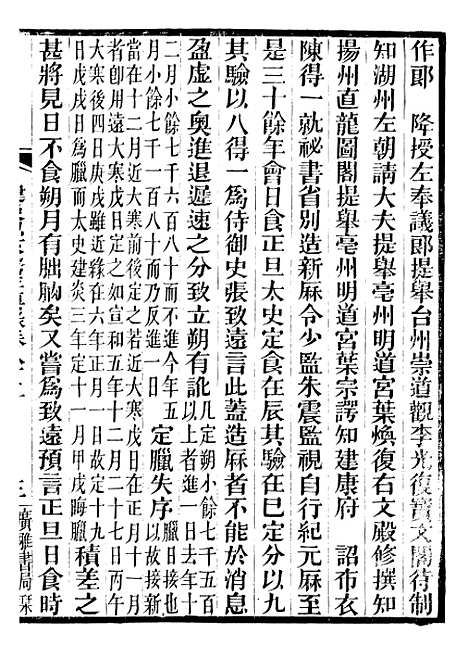 作郎　降授左奉議郎提舉台州崇道觀李光復寶文閣待制
知湖州左朝請大夫提舉亳州明道宮葉煥復右文殿修撰知
揚州直龍圖閣提舉亳州明道宮葉宗諤知建康府　詔布衣
陳得一就祕書省別造新厤令少監朱震監視自行紀元厤至
是三十餘年會日食正旦太史定食在辰其驗在巳定分以九
其驗以八得一爲侍御史張致遠言此蓋造厤者不能於消息
盈虛之奧進退遲速之分致立朔有訛凡定朔小餘七千五百
以上者進一日去年十
二月小餘七千六百八十而不進今年五
月小餘七千一百八十而乃反進一日定臘失序以臘日接
故接新
者卽用遠大寒戌日定之如宣和五年十二月二十七日
大寒後四日庚戌雖近緣在六年正月一日故定十九
日戊戌日爲臘而太史建炎三年定十一月甲戌晦臘積差之
甚將見日不食朔月有朏朒矣又嘗爲致遠預言正旦日食時
廣雅書局栞